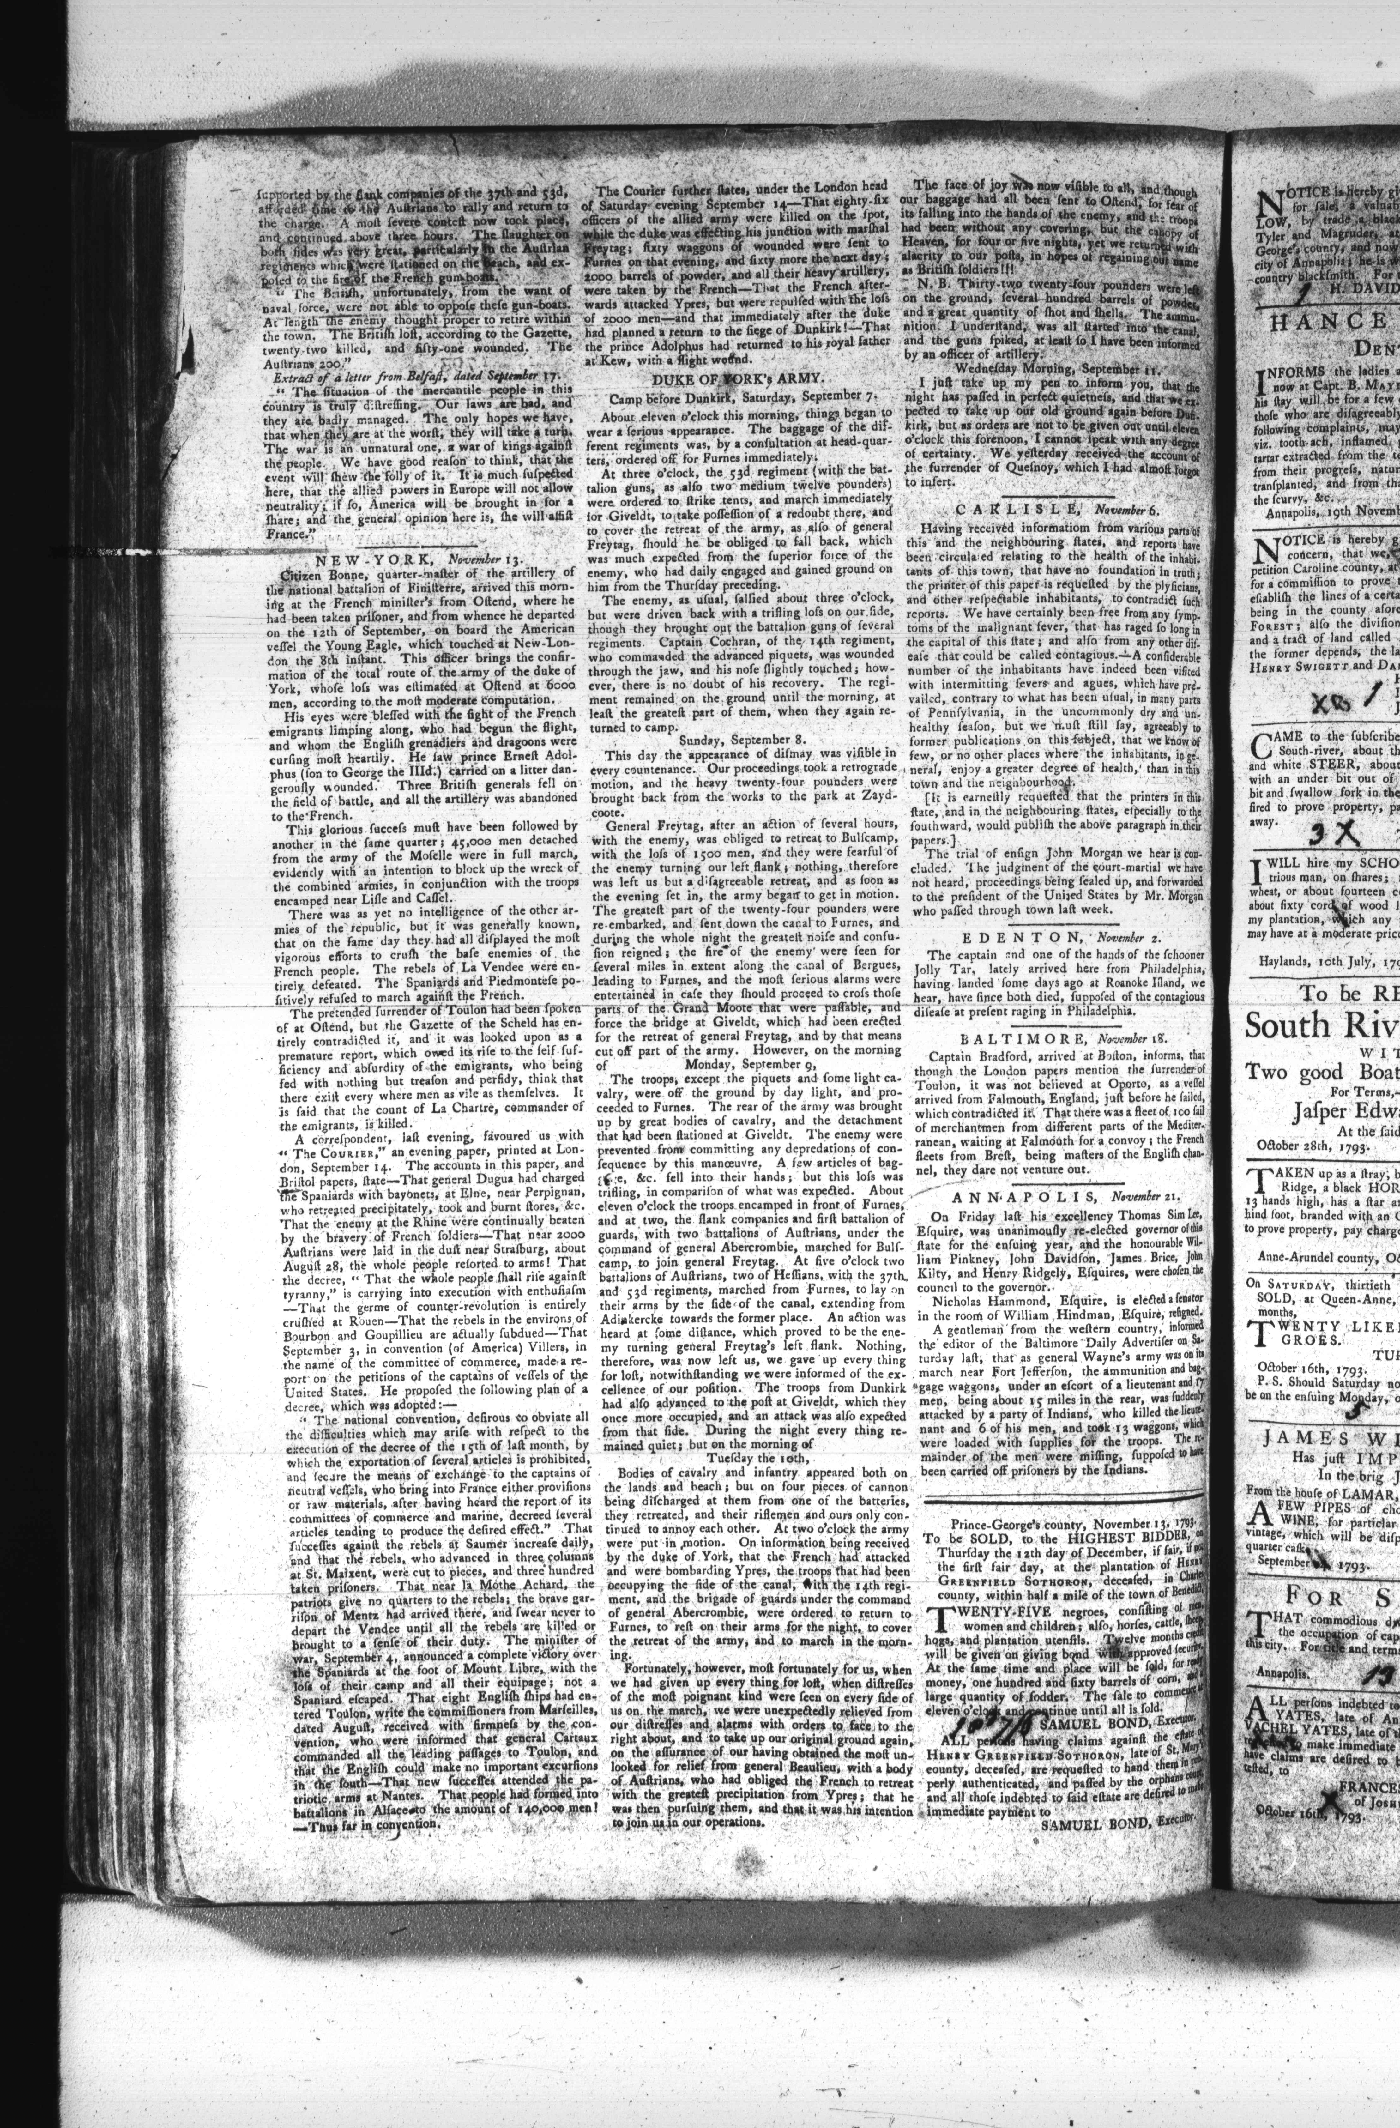 supported by the flank companies of the 37th and 53d,
afforded time to the Austrians to rally and return to
the charge. A most severe contest now took place,
and continued above three hours. The slaughter on
both sides was very great, particularly in the Austrian
regiments which were stationed on the beach, and ex-
posed to the fire of the French gun-boats.
" The British, unfortunately, from the want of
naval force, were not able to oppose these gun-boats.
At length the enemy thought proper to retire within
the town. The British lost, according to the Gazette,
twenty-two killed, and fifty-one wounded. The
Austrians 200."
Extract of a letter from Belfast, dated September 17.
" The situation of the mercantile people in this
country is truly distressing. Our laws are bad, and
they are badly managed. The only hopes we have,
that when they are at the worst, they will take a turn.
The war is an unnatural one, a war of kings against
the people. We have good reason to think, that the
event will shew the folly of it. It is much suspected
here, that the allied powers in Europe will not allow
neutrality; if so, America will be brought in for a
share; and the general opinion here is, she will assist
France."
NEW-YORK, November 13.
Citizen Bonne, quarter-master of the artillery of
the national battalion of Finisterre, arrived this morn-
ing at the French minister's from Ostend, where he
had been taken prisoner, and from whence he departed
on the 12th of September, on board the American
vessel the Young Eagle, which touched at New-Lon-
don the 8th instant. This officer brings the confir-
mation of the total route of the army of the duke of
York, whose loss was estimated at Ostend at 6000
men, according to the most moderate computation.
His eyes were blessed with the sight of the French
emigrants limping along, who had begun the flight,
and whom the English grenadiers and dragoons were
cursing most heartily. He saw prince Ernest Adol-
phus (son to George the IIId.) carried on a litter dan-
gerously wounded. Three British generals fell on
the field of battle, and all the artillery was abandoned
to the French.
This glorious success must have been followed by
another in the same quarter; 45,000 men detached
from the army of the Moselle were in full march,
evidently with an intention to block up the wreck of
the combined armies, in conjunction with the troops
encamped near Lisle and Cassel.
There was as yet no intelligence of the other ar-
mies of the republic, but it was generally known,
that on the same day they had all displayed the most
vigorous efforts to crush the base enemies of the
French people. The rebels of La Vendee were en-
tirely defeated. The Spaniards and Piedmontese po-
sitively refused to march against the French.
The pretended surrender of Toulon had been spoken
of at Ostend, but the Gazette of the Scheld has en-
tirely contradicted it, and it was looked upon as a
premature report, which owed its rise to the self suf-
ficiency and absurdity of the emigrants, who being
fed with nothing but treason and perfidy, think that
there exist every where men as vile as themselves. It
is said that the count of La Chartre, commander of
the emigrants, is killed.
A correspondent, last evening, favoured us with
" The COURIER," an evening paper, printed at Lon-
don, September 14. The accounts in this paper, and
Bristol papers, state—That general Dugua had charged
the Spaniards with bayonets, at Elne, near Perpignan,
who retreated precipitately, took and burnt stores, &c.
That the enemy at the Rhine were continually beaten
by the bravery of French soldiers—That near 2000
Austrians were laid in the dust near Strasburg, about
August 28, the whole people resorted to arms! That
the decree, " That the whole people shall rise against
tyranny," is carrying into execution with enthusiasm
—That the germe of counter-revolution is entirely
crushed at Rouen—That the rebels in the environs of
Bourbon and Goupillieu are actually subdued—That
September 3, in convention (of America) Villers, in
the name of the committee of commerce, made a re-
port on the petitions of the captains of vessels of the
United States. He proposed the following plan of a
decree, which was adopted:—
" The national convention, desirous to obviate all
the difficulties which may arise with respect to the
execution of the decree of the 15th of last month, by
which the exportation of several articles is prohibited,
and secure the means of exchange to the captains of
neutral vessels, who bring into France either provisions
or raw materials, after having heard the report of its
committees of commerce and marine, decreed several
articles tending to produce the desired effect." That
successes against the rebels at Saumer increase daily,
and that the rebels, who advanced in three columns
at St. Maixent, were cut to pieces, and three hundred
taken prisoners. That near la Mothe Achard, the
patriots give no quarters to the rebels; the brave gar-
rison of Mentz had arrived there, and swear never to
depart the Vendee until all the rebels are killed or
brought to a sense of their duty. The minister of
war, September 4, announced a complete victory over
the Spaniards at the foot of Mount Libre, with the
loss of their camp and all their equipage; not a
Spaniard escaped. That eight English ships had en-
tered Toulon, write the commissioners from Marseilles,
dated August, received with firmness by the con-
vention, who were informed that general Cartaux
commanded all the leading passages to Toulon, and
that the English could make no important excursions
in the south—That new successes attended the pa-
triotic arms at Nantes. That people had formed into
battalions in Alsace to the amount of 140,000 men!
—Thus far in convention.
The Courier further states, under the London head
of Saturday evening September 14—That eighty-six
officers of the allied army were killed on the spot,
while the duke was effecting his junction with marshal
Freytag; sixty waggons of wounded were sent to
Furnes on that evening, and sixty more the next day;
2000 barrels of powder, and all their heavy artillery,
were taken by the French—That the French after-
wards attacked Ypres, but were repulsed with the loss
of 2000 men—and that immediately after the duke
had planned a return to the siege of Dunkirk!—That
the prince Adolphus had returned to his royal father
at Kew, with a slight wound.
DUKE OF YORK's ARMY.
Camp before Dunkirk, Saturday, September 7.
About eleven o'clock this morning, things began to
wear a serious appearance. The baggage of the dif-
ferent regiments was, by a consultation at head-quar-
ters, ordered off for Furnes immediately.
At three o'clock, the 53d regiment (with the bat-
talion guns, as also two medium twelve pounders)
were ordered to strike tents, and march immediately
for Giveldt, to take possession of a redoubt there, and
to cover the retreat of the army, as also of general
Freytag, should he be obliged to fall back, which
was much expected from the superior force of the
enemy, who had daily engaged and gained ground on
him from the Thursday preceding.
The enemy, as usual, sallied about three o'clock,
but were driven back with a trifling loss on our side,
though they brought out the battalion guns of several
regiments. Captain Cochran, of the 14th regiment,
who commanded the advanced piquets, was wounded
through the jaw, and his nose slightly touched; how-
ever, there is no doubt of his recovery. The regi-
ment remained on the ground until the morning, at
least the greatest part of them, when they again re-
turned to camp.
Sunday, September 8.
This day the appearance of dismay was visible in
every countenance. Our proceedings took a retrograde
motion, and the heavy twenty-four pounders were
brought back from the works to the park at Zayd-
coote.
General Freytag, after an action of several hours,
with the enemy, was obliged to retreat to Bulscamp,
with the loss of 1500 men, and they were fearful of
the enemy turning our left flank; nothing, therefore
was left us but a disagreeable retreat, and as soon as
the evening set in, the army began to get in motion.
The greatest part of the twenty-four pounders were
re-embarked, and sent down the canal to Furnes, and
during the whole night the greatest noise and confu-
sion reigned; the fire of the enemy were seen for
several miles in extent along the canal of Bergues,
leading to Furnes, and the most serious alarms were
entertained in case they should proceed to cross those
parts of the Grand Moote that were passable, and
force the bridge at Giveldt, which had been erected
for the retreat of general Freytag, and by that means
cut off part of the army. However, on the morning
of Monday, September 9,
The troops, except the piquets and some light ca-
valry, were off the ground by day light, and pro-
ceeded to Furnes. The rear of the army was brought
up by great bodies of cavalry, and the detachment
that had been stationed at Giveldt. The enemy were
prevented from committing any depredations of con-
sequence by this manœuvre. A few articles of bag-
gage, &c. fell into their hands; but this loss was
trifling, in comparison of what was expected. About
eleven o'clock the troops encamped in front of Furnes,
and at two, the flank companies and first battalion of
guards, with two battalions of Austrians, under the
command of general Abercrombie, marched for Buls-
camp, to join general Freytag. At five o'clock two
battalions of Austrians, two of Hessians, with the 37th
and 53d regiments, marched from Furnes, to lay on
their arms by the side of the canal, extending from
Adinkercke towards the former place. An action was
heard at some distance, which proved to be the ene-
my turning general Freytag's left flank. Nothing,
therefore, was now left us, we gave up every thing
for lost, notwithstanding we were informed of the ex-
cellence of our position. The troops from Dunkirk
had also advanced to the post at Giveldt, which they
once more occupied, and an attack was also expected
from that side. During the night every thing re-
mained quiet; but on the morning of
Tuesday the 10th,
Bodies of cavalry and infantry appeared both on
the lands and beach; but on four pieces of cannon
being discharged at them from one of the batteries,
they retreated, and their riflemen and ours only con-
tinued to annoy each other. At two o'clock the army
were put in motion. On information being received
by the duke of York, that the French had attacked
and were bombarding Ypres, the troops that had been
occupying the side of the canal, with the 14th regi-
ment, and the brigade of guards under the command
of general Abercrombie, were ordered to return to
Furnes, to rest on their arms for the night, to cover
the retreat of the army, and to march in the morn-
ing.
Fortunately, however, most fortunately for us, when
we had given up every thing for lost, when distresses
of the most poignant kind were seen on every side of
us on the march, we were unexpectedly relieved from
our distresses and alarms with orders to face to the
right about, and to take up our original ground again,
on the assurance of our having obtained the most un-
looked for relief from general Beaulieu, with a body
of Austrians, who had obliged the French to retreat
with the greatest precipitation from Ypres; that he
was then pursuing them, and that it was his intention
to join us in our operations.
The face of joy was now visible to all, and though
our baggage had all been sent to Ostend, for fear of
its falling into the hands of the enemy, and the troops
had been without any covering, but the canopy of
Heaven, for four or five nights, yet we returned with
alacrity to our posts, in hopes of regaining our name
as British soldiers!!!
N. B. Thirty-two twenty-four pounders were left
on the ground, several hundred barrels of powder,
and a great quantity of shot and shells. The ammu-
nition, I understand, was all started into the canal,
and the guns spiked, at least so I have been informed
by an officer of artillery.
Wednesday Morning, September 11.
I just take up my pen to inform you, that the
night has passed in perfect quietness, and that we ex-
pected to take up our old ground again before Dun-
kirk, but as orders are not to be given out until eleven
o'clock this forenoon, I cannot speak with any degree
of certainty. We yesterday received the account of
the surrender of Quesnoy, which I had almost forgot
to insert.
CARLISLE, November 6.
Having received informatiom from various parts of
this and the neighbouring states, and reports have
been circulated relating to the health of the inhabi-
tants of this town, that have no foundation in truth;
the printer of this paper is requested by the plysicians,
and other respectable inhabitants, to contradict such
reports. We have certainly been free from any symp-
toms of the malignant fever, that has raged so long in
the capital of this state; and also from any other dis-
ease that could be called contagious.—A considerable
number of the inhabitants have indeed been visited
with intermitting fevers and agues, which have pre-
vailed, contrary to what has been usual, in many parts
of Pennsylvania, in the uncommonly dry and un-
healthy season, but we must still say, agreeably to
former publications on this subject, that we know of
few, or no other places where the inhabitants, in ge-
neral, enjoy a greater degree of health, than in this
town and the neighbourhood.
[It is earnestly requested that the printers in this
state, and in the neighbouring states, especially to the
southward, would publish the above paragraph in their
papers.]
The trial of ensign John Morgan we hear is con-
cluded. The judgment of the court-martial we have
not heard, proceedings being sealed up, and forwarded
to the president of the United States by Mr. Morgan
who passed through town last week.
EDENTON, November 2.
The captain and one of the hands of the schooner
Jolly Tar, lately arrived here from Philadelphia,
having landed some days ago at Roanoke Island, we
hear, have since both died, supposed of the contagious
disease at present raging in Philadelphia.
BALTIMORE, November 18.
Captain Bradford, arrived at Boston, informs, that
though the London papers mention the surrender of
Toulon, it was not believed at Oporto, as a vessel
arrived from Falmouth, England, just before he sailed,
which contradicted it. That there was a fleet of 100 sail
of merchantmen from different parts of the Mediter-
ranean, waiting at Falmouth for a convoy; the French
fleets from Brest, being masters of the English chan-
nel, they dare not venture out.
ANNAPOLIS, November 21.
On Friday last his excellency Thomas Sim Lee,
Esquire, was unanimously re-elected governor of this
state for the ensuing year, and the honourable Wil-
liam Pinkney, John Davidson, James Brice, John
Kilty, and Henry Ridgely, Esquires, were chosen the
council to the governor.
Nicholas Hammond, Esquire, is elected a senator
in the room of William Hindman, Esquire, resigned.
A gentleman from the western country, informed
the editor of the Baltimore Daily Advertiser on Sa-
turday last, that as general Wayne's army was on its
march near Fort Jefferson, the ammunition and bag-
gage waggons, under an escort of a lieutenant and 17
men, being about 15 miles in the rear, was suddenly
attacked by a party of Indians, who killed the lieute-
nant and 6 of his men, and took 13 waggons, which
were loaded with supplies for the troops. The re-
mainder of the men were missing, supposed to have
been carried off prisoners by the Indians.
Prince-George's county, November 13, 1793.
To be SOLD, to the HIGHEST BIDDER, on
Thursday the 12th day of December, if fair, if not
the first fair day, at the plantation of HENRY
GREENFIELD SOTHORON, deceased, in Charles
county, within half a mile of the town of Benedict,
TWENTY-FIVE negroes, consisting of men,
women and children; also, horses, cattle, sheep,
hogs, and plantation utensils. Twelve months credit
will be given on giving bond with approved security.
At the same time and place will be sold, for ready
money, one hundred and sixty barrels of corn, and a
large quantity of fodder. The sale to commence at
eleven o'clock and continue until all is sold.
SAMUEL BOND, Executor.
ALL persons having claims against the estate of
HENRY GREENFIELD SOTHORON, late of St. Mary's
county, deceased, are requested to hand them in pro-
perly authenticated, and passed by the orphans court
and all those indebted to said estate are desired to make
immediate payment to
SAMUEL BOND, Executor.
NOTICE is hereby
for sale, a valuab
LOW, by trade a black
Tyler and Magruder, at
George's county, and now
city of Annapolis; he is w
country blacksmith. For
H. DAVID
HANCE
DENT
INFORMS the ladies a
now at Capt. B. MAY
his stay will be for a few
those who are disagreeabl
following complaints, may
viz. tooth-ach, inflamed
tartar extracted from the te
from their progress, natur
transplanted, and from tha
the scurvy, &c.
Annapolis, 19th Novemb
NOTICE is hereby g
concern, that we,
petition Caroline county, at
for a commission to prove
establish the lines of a certa
being in the county afore
FOREST; also the division
and a tract of land called
the former depends, the la
HENRY SWIGETT and DA
CAME to the subscribe
South-river, about th
and white STEER, about
with an under bit out of
bit and swallow fork in the
sired to prove property, pa
away.
3 X
I WILL hire my SCHO
trious man, on shares;
wheat, or about fourteen co
about sixty cord of wood
my plantation, which any
may have at a moderate price
Haylands, 10th July, 179
To be RE
South Riv
WIT
Two good Boat
For Terms,
Jasper Edwa
At the said
October 28th, 1793.
TAKEN up as a stray, b
Ridge, a black HOR
13 hands high, has a star a
hind foot, branded with an
to prove property, pay charge
Anne-Arundel county, Oc
On SATURDAY, thirtieth
SOLD, at Queen-Anne,
months,
TWENTY LIKE
GROES.
TUR
October 16th, 1793.
P. S. Should Saturday no
be on the ensuing Monday,
5
JAMES WI
Has just IMP
In the brig J
From the house of LAMAR,
A FEW PIPES of cho
WINE, for particlar
vintage, which will be disp
quarter casks.
September 1793.
FOR S
THAT commodious dw
the occupation of cap
this city. For title and term
Annapolis.
13
ALL persons indebted to
YATES, late of An
VACHEL YATES, late of
to make immediate
have claims are desired to
tested, to
FRANCES
of JOSH
October 16th, 1793.